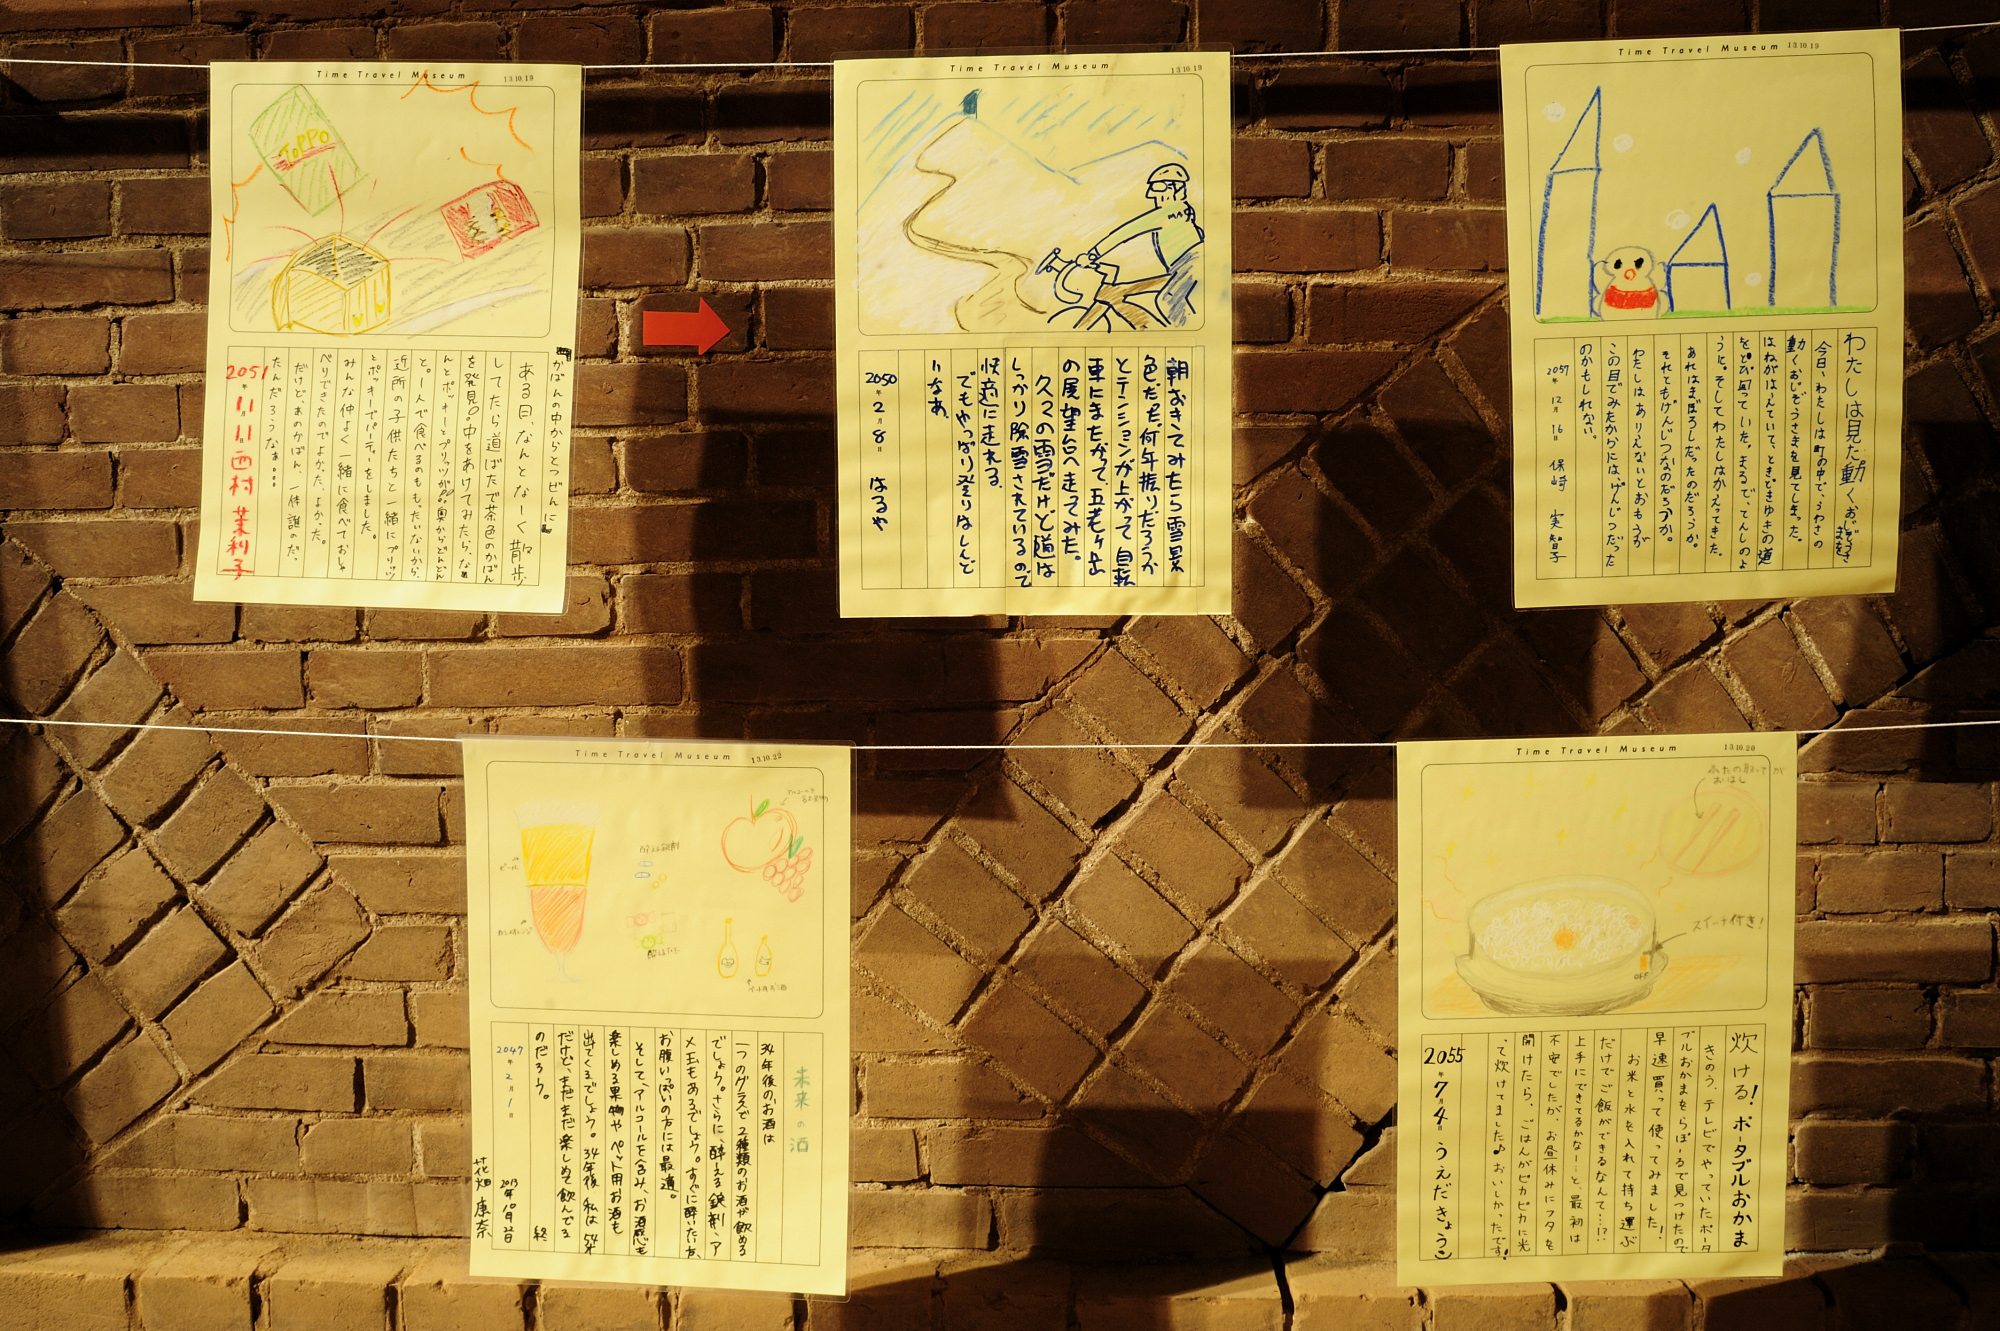 Time Travel Museum
13.10.19
TOPPO
かばんの中からとつぜんに
ある日、なんとなーく散歩
してたら道ばたで茶色のかばん
を発見。中をあけてみたら、なん
んとポッキーとプリッツが!!奥からどんどん
と。一人で食べるのももったいないから、
近所の子供たちと一緒にプリッツ
とポッキーでパーティーをしました。
みんな仲よく一緒に食べておしゃ
べりできたのでよかった、よかった。
だけど、あのかばん、一体誰のだっ
たんだろうなぁ…。
2051年11月11日 西村 茉利子
Time Travel Museum
13.10.19
朝おきてみたら雪景
色だった。何年振りだろうか
とテンションが上がって自転
車にまたがって、五老ヶ岳
の展望台へ走ってみた。
久々の雪だけど道は
しっかり除雪されているので
快適に走れる。
でもやっぱり登りはしんど
いなあ。
2050年2月8日 はるや
Time Travel Museum
13.10.19
わたしは見た動くおじぞうさまを
今日、わたしは町の中で、うわさの
動くおじぞうさまを見てしまった。
はねがはえていて、ときどきゆきの道
をとび回っていた。まるで、てんしのよ
うに。そしてわたしはかえってきた。
あれはまぼろしだったのだろうか。
それともげんじつなのだろうか。
わたしはありえないとおもうが
この目でみたからには、げんじつだった
のかもしれない。
2057年12月16日 保崎 実知子
Time Travel Museum
13.10.22
ビール
未来の酒
34年後のお酒は
一つのグラスで2種類のお酒が飲める
でしょう。さらに、酔える錠剤、ア
メ玉もあるでしょう。すぐに酔いたい方、
お腹いっぱいの方には最適。
そして、アルコールを含み、お酒感も
楽しめる果物やペット用お酒も
出てくるでしょう。34年後、私は54才
だけど、まだまだ楽しめて飲んでる
のだろう。
終
2047年2月1日
2013年10月22日
花畑 康奈
Time Travel Museum
13.10.20
ふたの取っ手が
おはし
スイーチ付き!
OFF
炊ける!ポータブルおかま
きのう、テレビでやっていたポータ
ブルおかまをららぽーるで見つけたので
早速買って使ってみました!
お米と水を入れて持ち運ぶ
だけでご飯ができるなんて…!?
上手にできてるかなー…と、最初は
不安でしたが、お昼休みにフタを
開けたら、ごはんがピカピカに光
って炊けてました♪おいしかったです!
2055年7月4日 うえだきょうこ